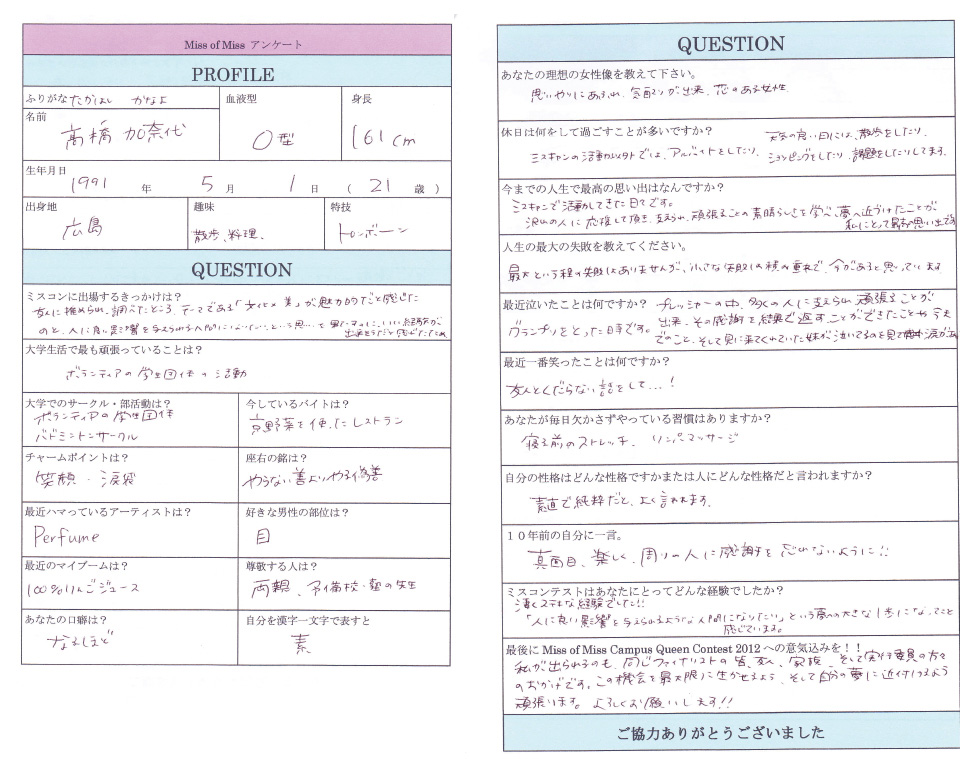 Miss of Miss アンケート
PROFILE
ふりがな たかはし かなよ
名前 高橋 加奈代
血液型 O型
身長 161cm
生年月日
1991 年 5 月 1 日 ( 21 歳 )
出身地 広島
趣味 散歩、料理、
特技 トロンボーン
QUESTION
ミスコンに出場するきっかけは?
友人に推められ、調べたところ、テーマである「文化×美」が魅力的だと感じた
のと、人に良い影響を与えられる人間になりたいという思いを果たすのに、いい経験が
出来そうだと感じたため
大学生活で最も頑張っていることは?
ボランティアの学生団体の活動
大学でのサークル・部活動は?
ボランティアの学生団体
バドミントンサークル
今しているバイトは?
京野菜を使ったレストラン
チャームポイントは?
笑顔・涙袋
座右の銘は?
やらない善よりやる偽善
最近ハマっているアーティストは?
Perfume
好きな男性の部位は?
目
最近のマイブームは?
100%りんごジュース
尊敬する人は?
両親、予備校・塾の先生
あなたの口癖は?
なるほど
自分を漢字一文字で表すと
素
QUESTION
あなたの理想の女性像を教えて下さい。
思いやりにあふれ、気配りが出来、花のある女性
休日は何をして過ごすことが多いですか?
天気の良い日には、散歩をしたり、
ミスキャンの活動以外では、アルバイトをしたり、ショッピングをしたり、課題をしたりしてます。
今までの人生で最高の思い出はなんですか?
ミスキャンで活動してきた日々です。
沢山の人に応援して頂き、支えられ、頑張ることの素晴らしさを学べ、夢へ近づけたことが
私にとって最高の思い出です
人生の最大の失敗を教えてください。
最大という程の失敗はありませんが、小さな失敗の積み重ねで、今があると思っています
最近泣いたことは何ですか? プレッシャーの中、多くの人に支えられ頑張ることが
グランプリをとった日です。出来、その感謝を結果で返すことができたことや今ま
でのこと、そして見に来てくれていた妹が泣いてるのを見て涙が
最近一番笑ったことは何ですか?
友人とくだらない話をして…!
あなたが毎日欠かさずやっている習慣はありますか?
寝る前のストレッチ、リンパマッサージ
自分の性格はどんな性格ですかまたは人にどんな性格だと言われますか?
素直で純粋だと、よく言われます。
10年前の自分に一言。
真面目、楽しく、周りの人に感謝を忘れないように!!
ミスコンテストはあなたにとってどんな経験でしたか?
凄くステキな経験でした!!
「人に良い影響を与えられるような人間になりたい」という夢への大きな1歩になったこと
感じています。
最後に Miss of Miss Campus Queen Contest 2012 への意気込みを!!
私が出られるのも、同じファイナリストの皆、友人、家族、そして実行委員の方々
のおかげです。この機会を最大限に生かせるよう、そして自分の夢に近付けるよう
頑張ります。よろしくお願いします!!
ご協力ありがとうございました